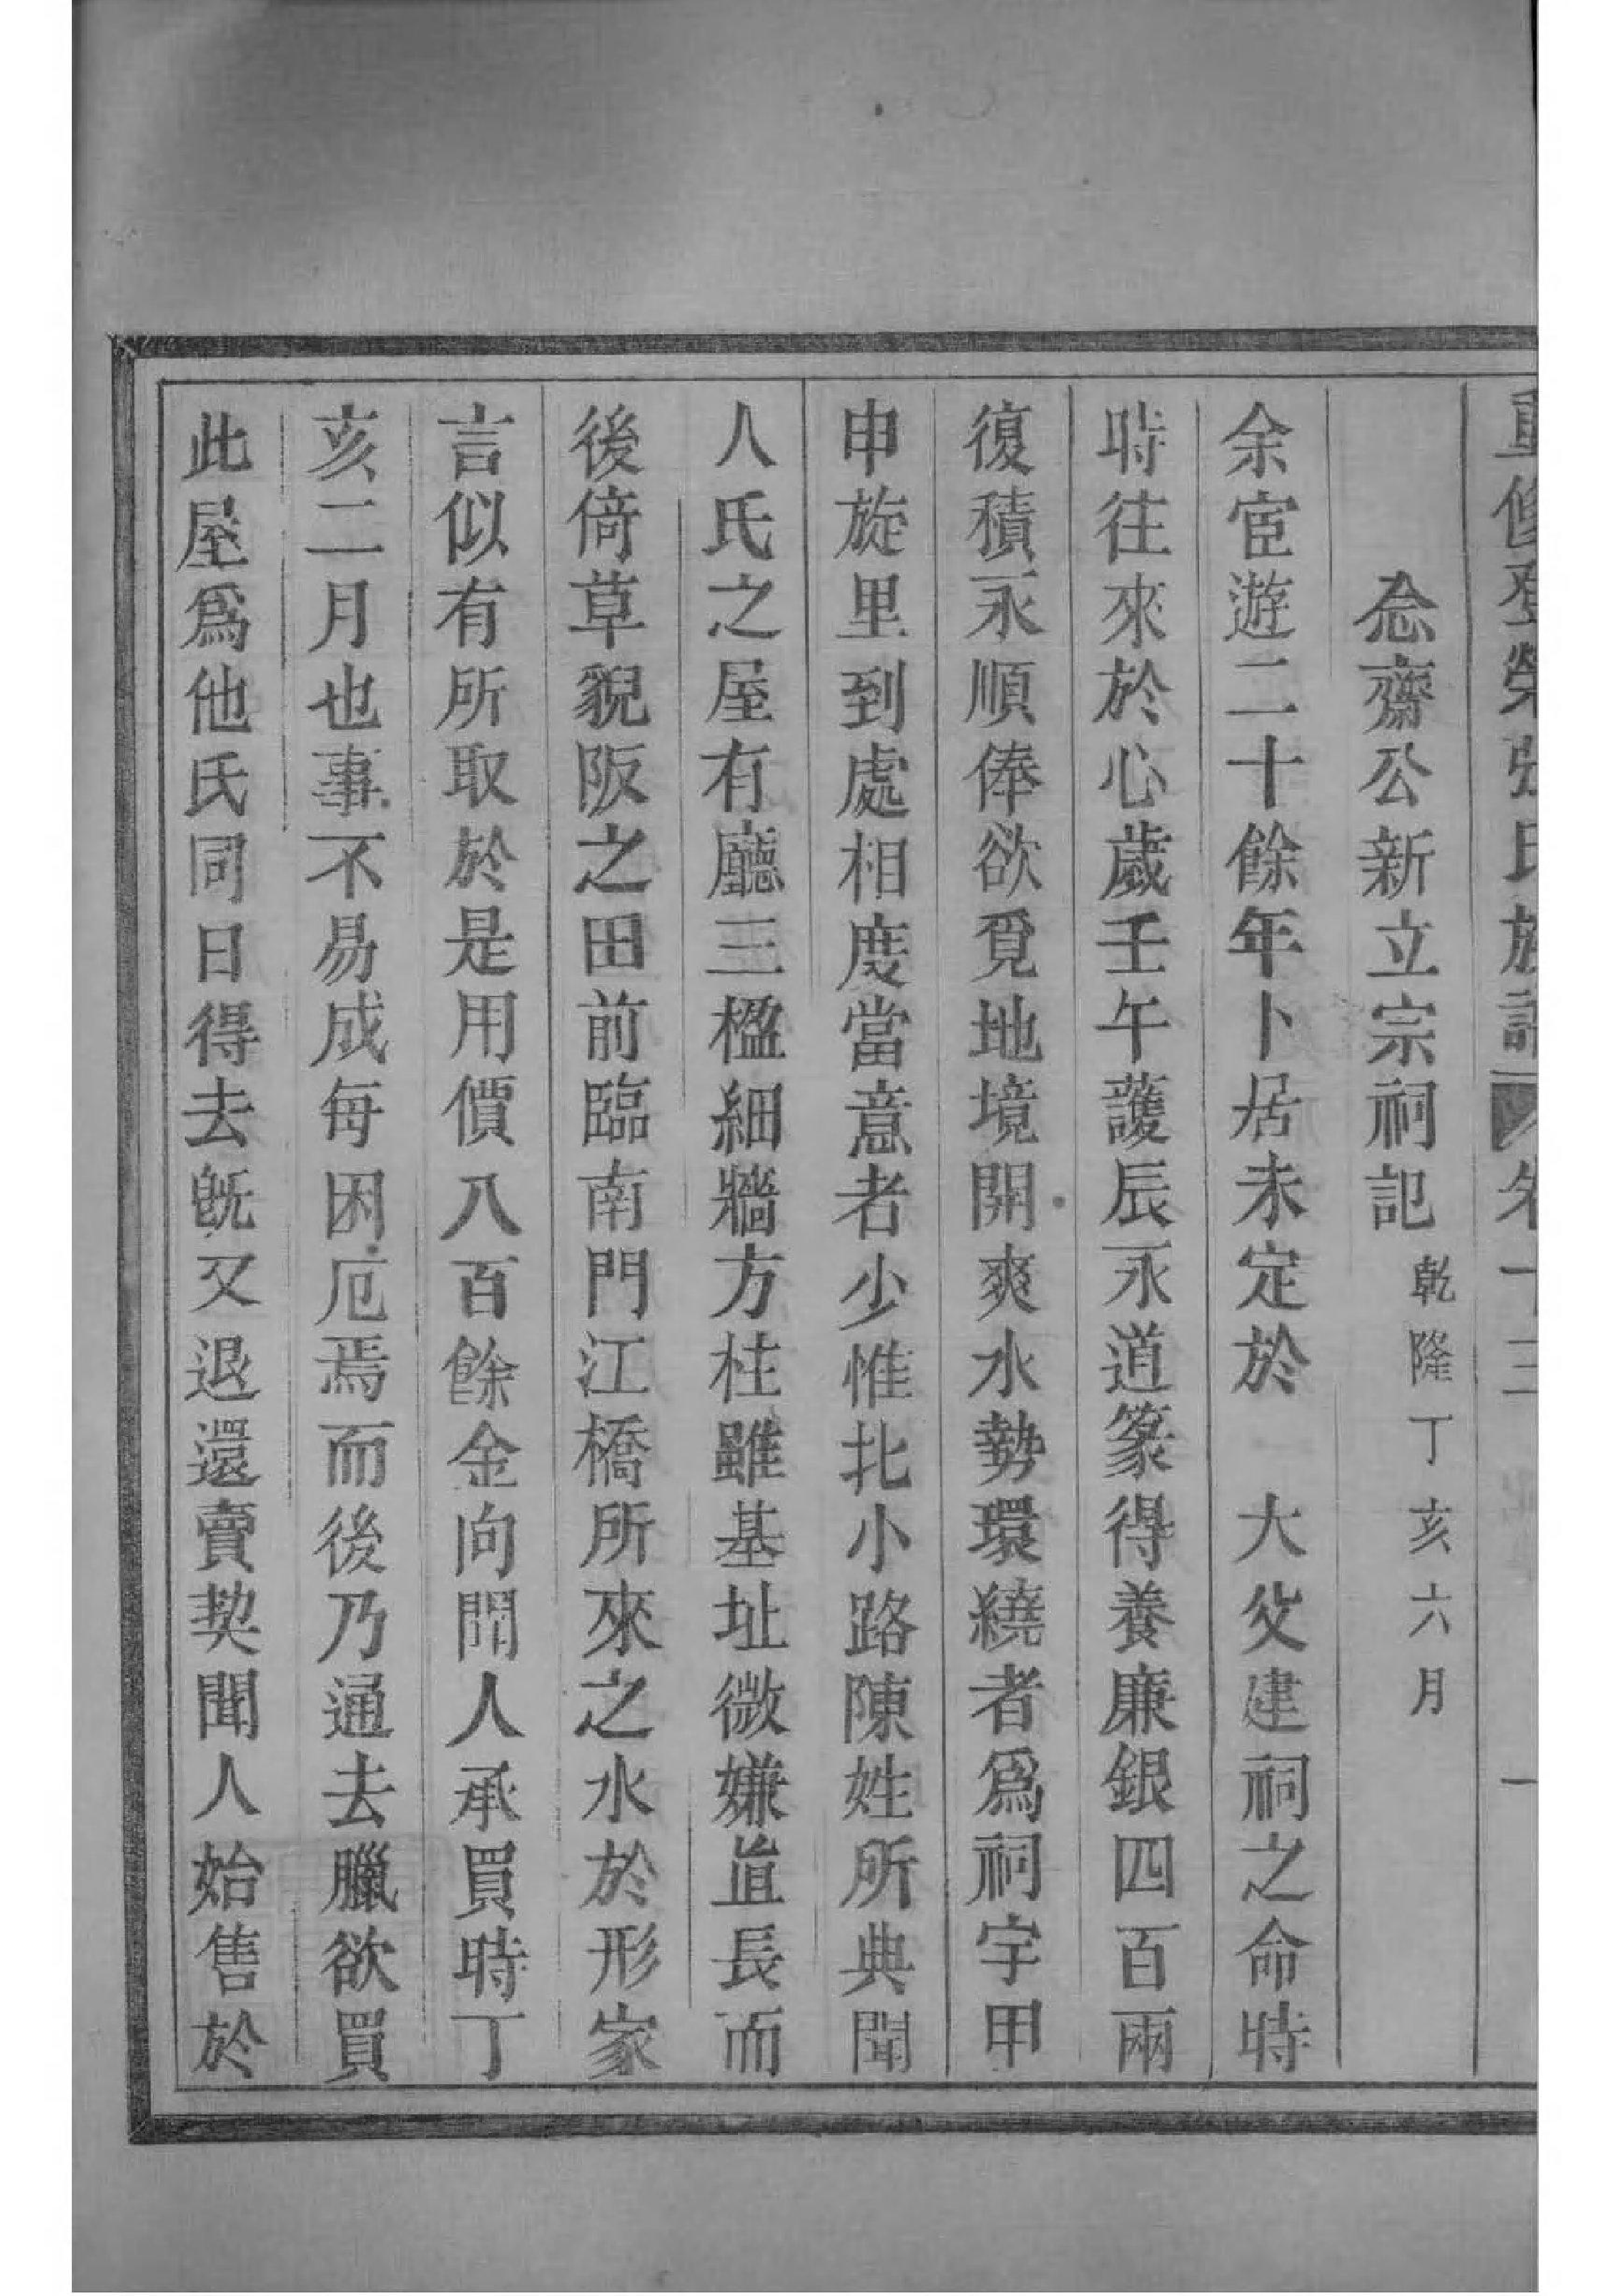 重修登榮張氏族譜 卷十三 一
念齋公新立宗祠記 乾隆丁亥六月
余宦遊二十餘年卜居未定於 大父建祠之命時
時往來於心歲壬午護辰永道篆得養廉銀四百兩
復積永順俸欲覓地境開爽水勢環繞者爲祠宇甲
申旋里到處相度當意者少惟北小路陳姓所典聞
人氏之屋有廳三楹細牆方柱雖基址微嫌直長而
後倚草貌阪之田前臨南門江橋所來之水於形家
言似有所取於是用價八百餘金向聞人承買時丁
亥二月也事不易成每困厄焉而後乃通去臘欲買
此屋爲他氏同日得去旣又退還賣契聞人始售於